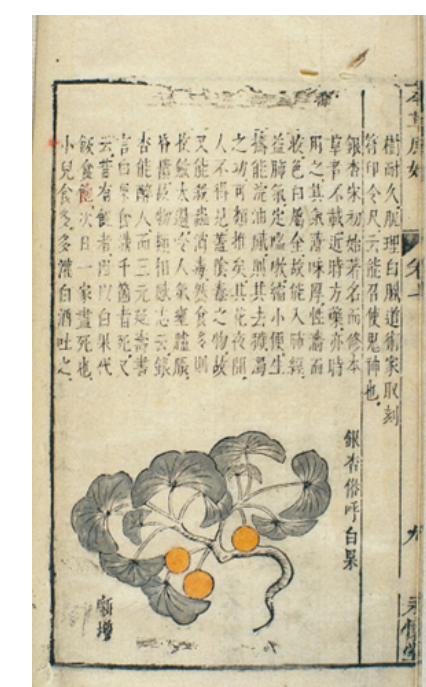 本草原始
九
永懷堂
樹耐久肌理白膩道術家取刻
符印令尺云能召使鬼神也
銀杏宋初始著名而修本
草者不載近時方藥亦時
用之其氣薄味厚性濇而
收色白屬金故能入肺經
益肺氣定喘嗽縮小便生
擣能浣油膩則其去痰濁
之功可類推矣其花夜開
人不得見蓋陰毒之物故
又能殺蟲消毒然食多則
收斂太過令人氣壅臚脹
昏頓故物類相感志云銀
杏能醉人而三元延壽書
言白果食滿千箇者死又
云昔有饑者同以白果代
飯食飽次日一家盡死也
小兒食多多灌白酒吐之
銀杏俗呼白果
新增